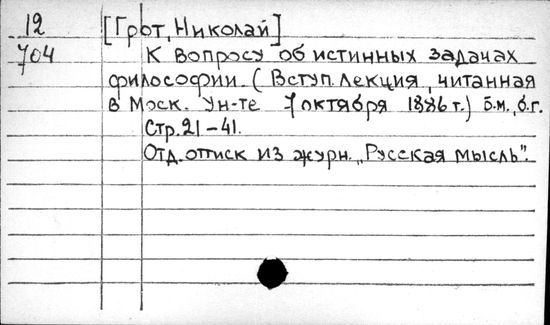 12 [Грот, Николай]
704 К вопросу об истинных задачах
философии. (Вступ. лекция, читанная
в Моск. Ун-те 7 октября 1886 г.) б.м., б.г.
Стр. 21-41.
Отд. оттиск из журн. „Русская мысль".